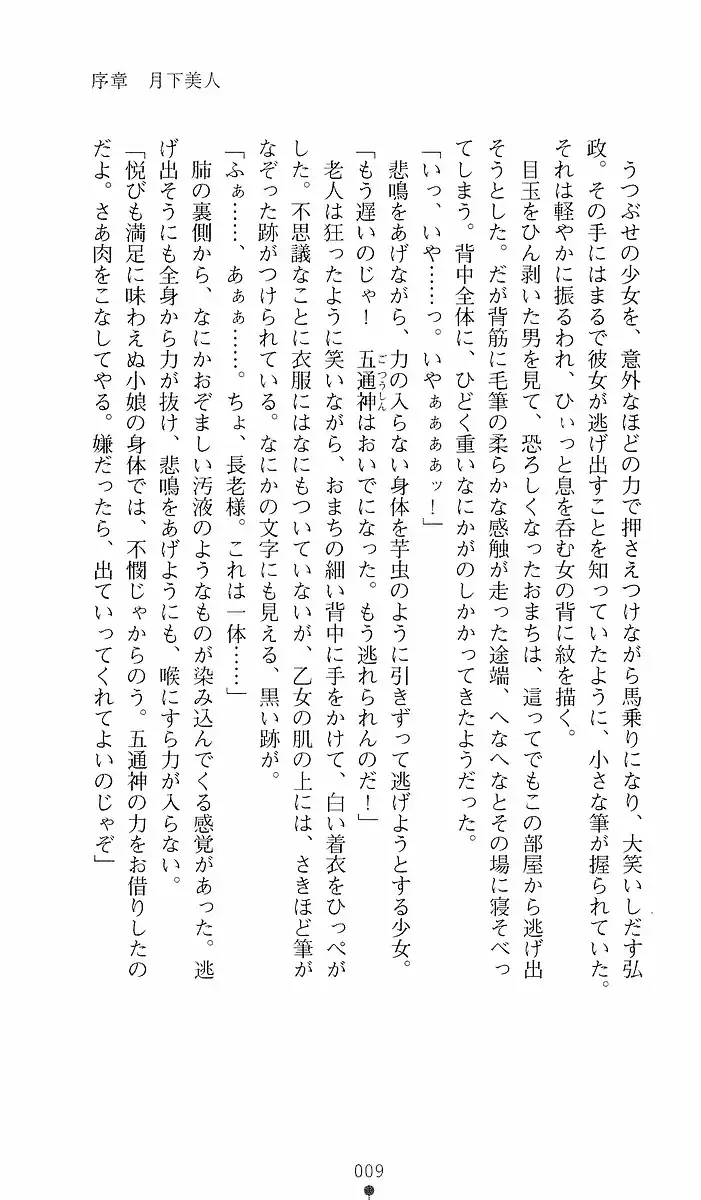 序章　月下美人
　うつぶせの少女を、意外なほどの力で押さえつけながら馬乗りになり、大笑いしだす弘
政。その手にはまるで彼女が逃げ出すことを知っていたように、小さな筆が握られていた。
それは軽やかに振るわれ、ひぃっと息を呑む女の背に紋を描く。
　目玉をひん剥いた男を見て、恐ろしくなったおまちは、這ってでもこの部屋から逃げ出
そうとした。だが背筋に毛筆の柔らかな感触が走った途端、へなへなとその場に寝そべっ
てしまう。背中全体に、ひどく重いなにかがのしかかってきたようだった。
「いっ、いや……っ。いやぁぁぁぁッ！」
　悲鳴をあげながら、力の入らない身体を芋虫のように引きずって逃げようとする少女。
「もう遅いのじゃ！　五通神はおいでになった。もう逃れられんのだ！」
ごつうしん
　老人は狂ったように笑いながら、おまちの細い背中に手をかけて、白い着衣をひっぺが
した。不思議なことに衣服にはなにもついていないが、乙女の肌の上には、さきほど筆が
なぞった跡がつけられている。なにかの文字にも見える、黒い跡が。
「ふぁ……、あぁぁ……。ちょ、長老様。これは一体……」
　肺の裏側から、なにかおぞましい汚液のようなものが染み込んでくる感覚があった。逃
げ出そうにも全身から力が抜け、悲鳴をあげようにも、喉にすら力が入らない。
「悦びも満足に味わえぬ小娘の身体では、不憫じゃからのう。五通神の力をお借りしたの
だよ。さあ肉をこなしてやる。嫌だったら、出ていってくれてよいのじゃぞ」
009